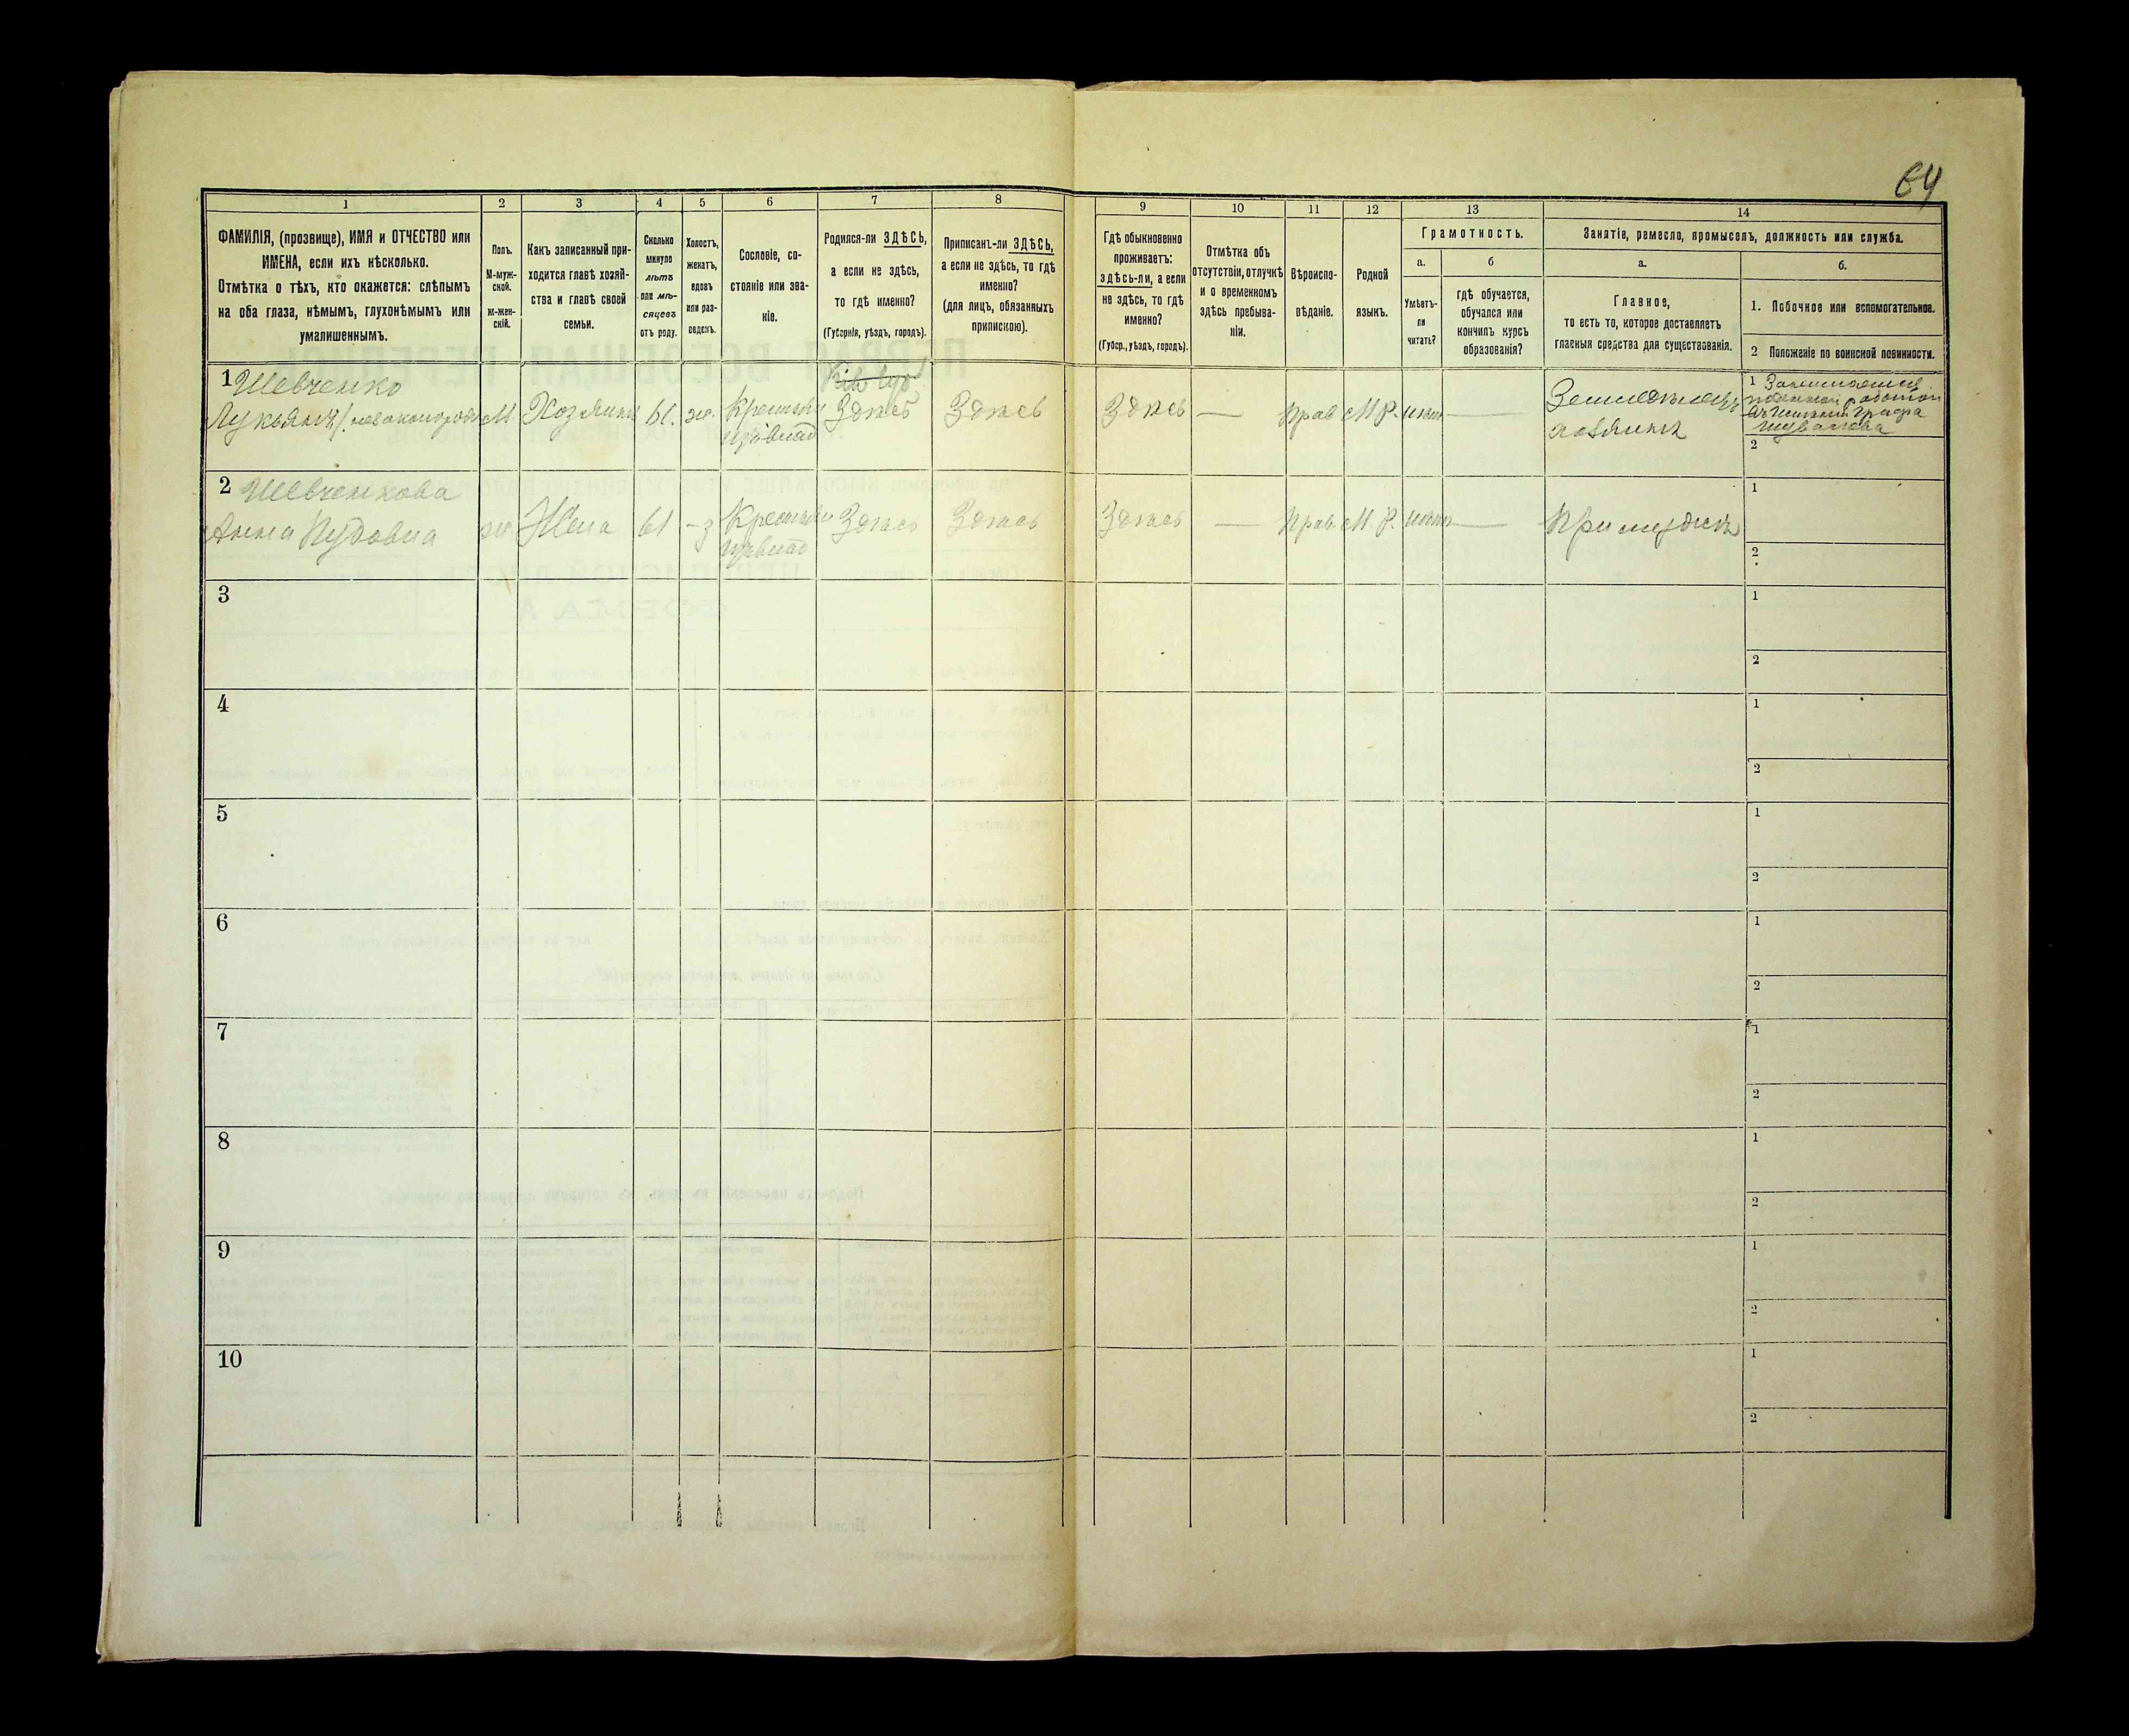 64
1
2
3
4
5
6
7
8
9
10
11
12
13
14
ФАМИЛІЯ, (прозвище), ИМЯ и ОТЧЕСТВО или
ИМЕНА, если ихъ нѣсколько.
Отмѣтка о тѣхъ, кто окажется: слѣпымъ
на оба глаза, нѣмымъ, глухонѣмымъ или
умалишеннымъ.
Полъ.
М-муж-
ской.
Ж-жен-
скій.
Какъ записанный при-
ходится главѣ хозяй-
ства и главѣ своей
семьи.
Сколько
минуло
лѣтъ
или мѣ-
сяцевъ
отъ роду.
Холостъ,
женатъ,
вдовъ
или раз-
веденъ.
Сословіе, со-
стояніе или зва-
ніе.
Родился-ли ЗДѢСЬ,
а если не здѣсь,
то гдѣ именно?
(Губернія, уѣздъ, городъ).
Приписанъ-ли ЗДѢСЬ,
а если не здѣсь, то гдѣ
именно?
(для лицъ, обязанныхъ
припискою).
Гдѣ обыкновенно
проживаетъ:
здѣсь-ли, а если
не здѣсь, то гдѣ
именно?
(Губер., уѣздъ, городъ).
Отмѣтка объ
отсутствіи, отлучкѣ
и о временномъ
здѣсь пребыва-
ніи.
Вѣроиспо-
вѣданіе.
Родной
языкъ.
Грамотность.
а.
Умѣетъ-
ли
читать?
б
гдѣ обучается,
обучался или
кончилъ курсъ
образованія?
Занятіе, ремесло, промыселъ, должность или служба.
а.
Главное,
то есть то, которое доставляетъ
главныя средства для существованія.
б.
1. Побочное или вспомогательное.
2 Положеніе по воинской повинности.
1 Шевченко
Лукьянъ
М.
Хозяинъ
61.
ж.
Здѣсь
Здѣсь
Здѣсь
—
Прав
М Р.
нѣтъ
—
хозяинъ
1 Занимается
Графа
2
2 Шевченкова
Анна
ж
Жена
61
-з
Здѣсь
Здѣсь
Здѣсь
—
Прав.
М. Р.
нѣтъ
—
При мужѣ
1
2
3
1
2
4
1
2
5
1
2
6
1
2
7
1
2
8
1
2
9
1
2
10
1
2